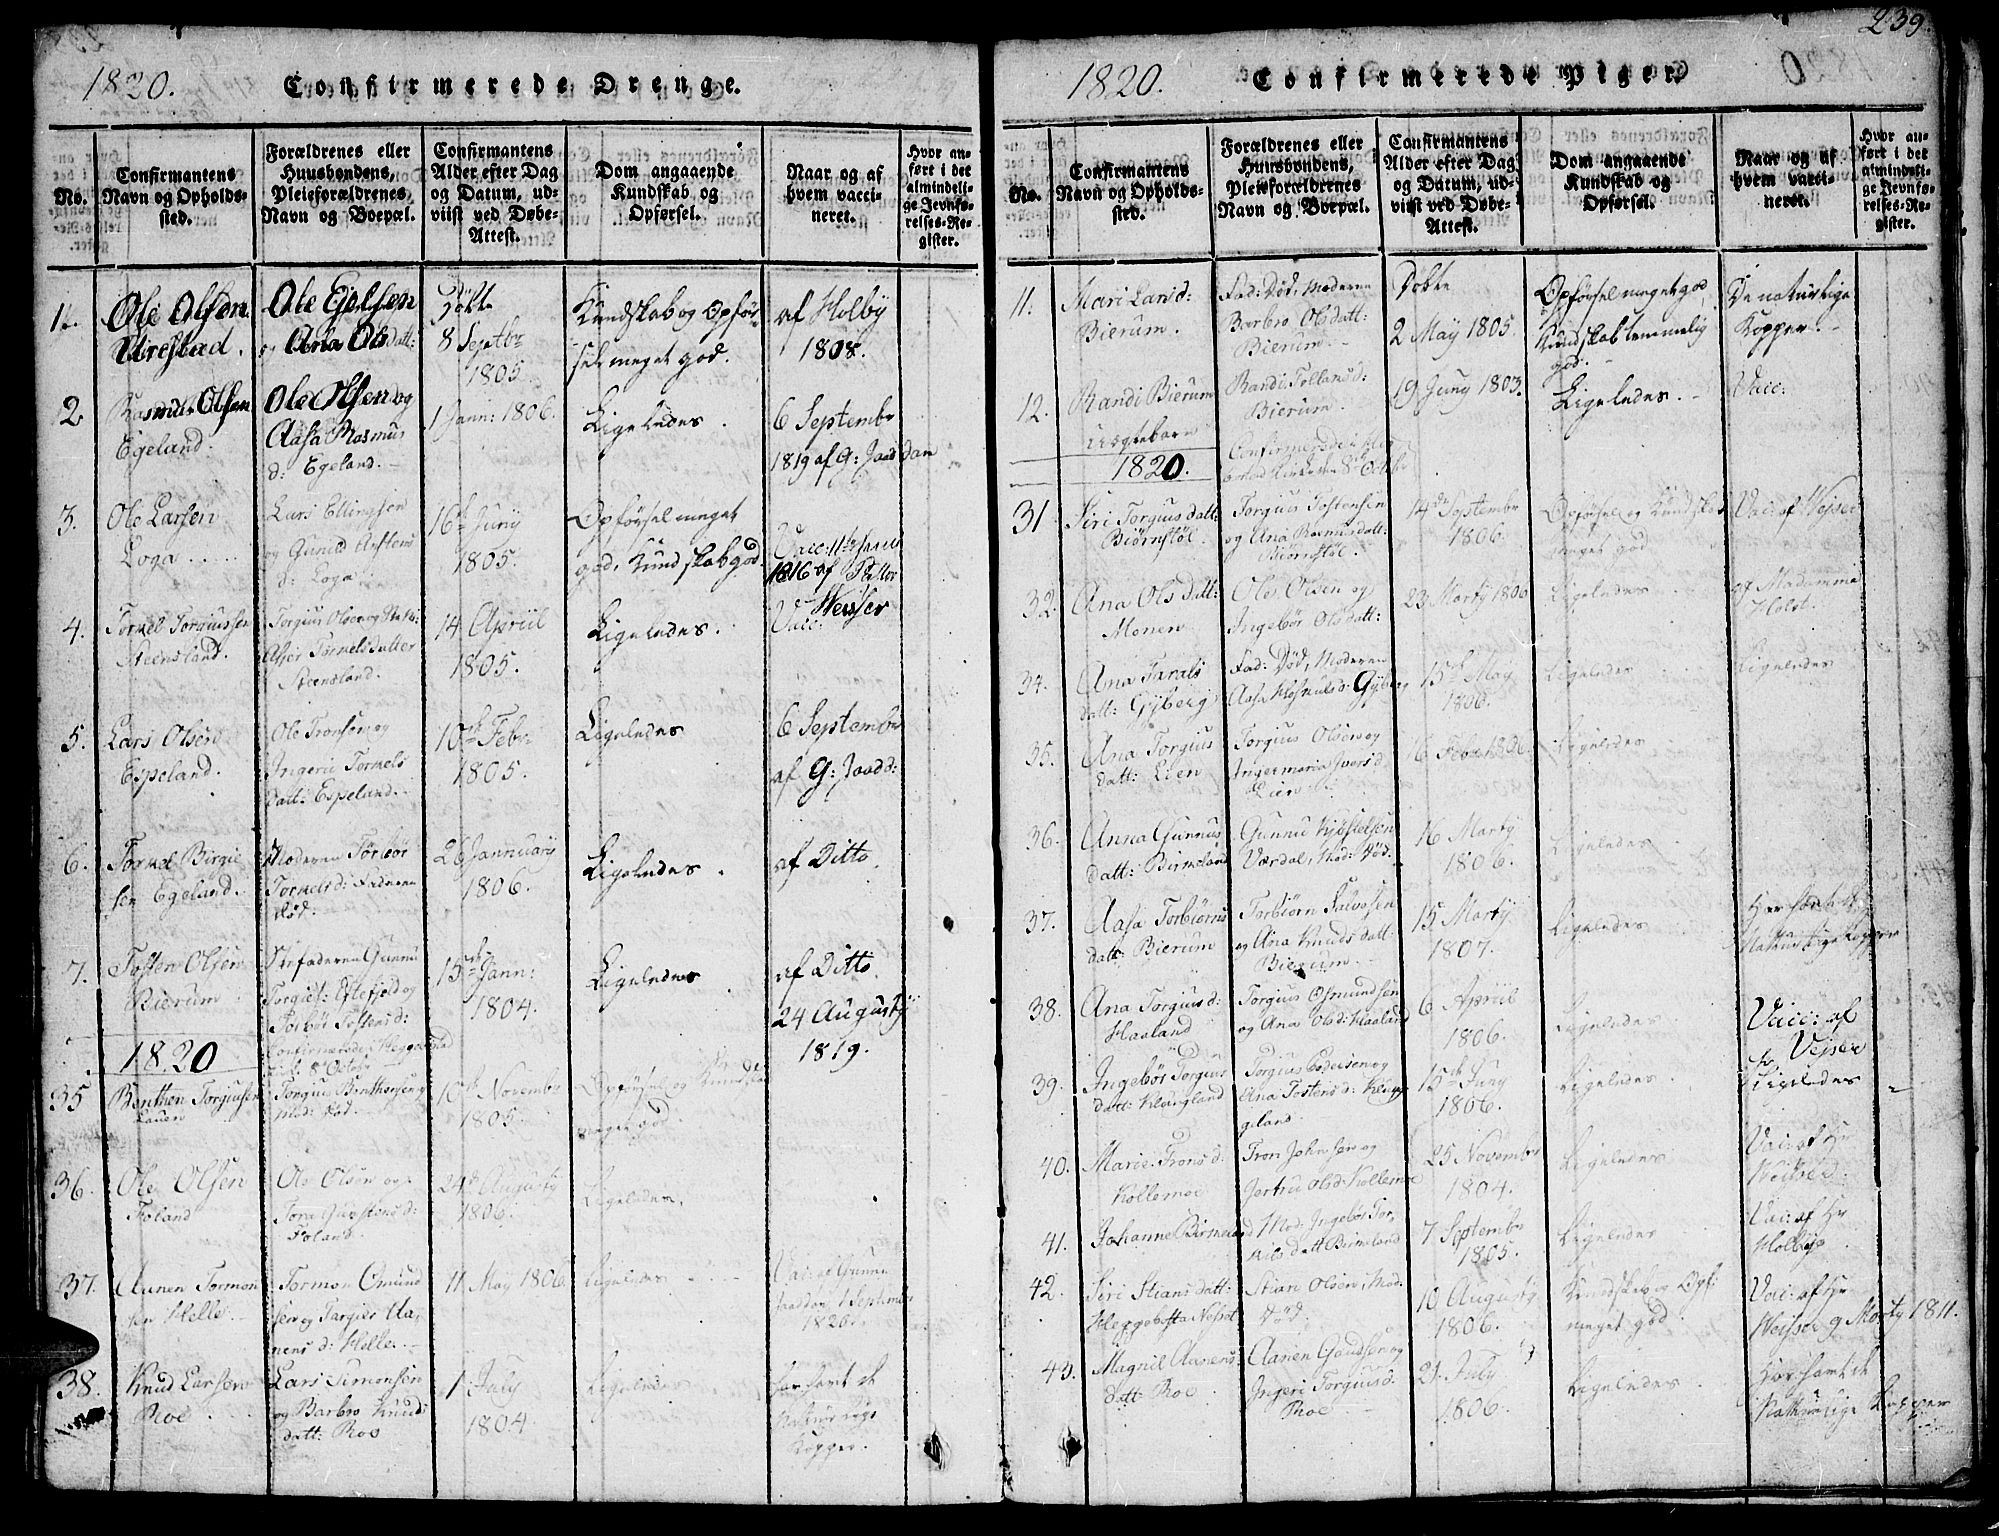 239.
1820.
Confirmerede Drenge.
No.
Confirmantens
Navn og Opholds-
sted.
Forældrenes eller
Huusbondens,
Pleieforældrenes,
Navn og Boepæl.
Confirmantens
Alder efter Dag
og Datum, ud-
viist ved Døbe-
Attest.
Dom angaaende
Kundskab og
Opførsel.
Naar og af
hvem vacci-
neret.
Hvor an-
ført i det
almindeli-
ge Jevnfø-
relses-Re-
gister.
1.
Ole Olsen
Ole Ejelsen
og Ana Ols datt:
Døbte
8 Septbr
1805
Kundskab og Opfør-
sel meget god.
af Holby
1808.
2
Rasmus Olsen
Egeland.
Ole Olsen og
Aasa Rasmus
d: Egeland.
1 Jann: 1806.
Ligeledes.
6 Septembr
1819 af G: Jaaddan
3.
Ole Larsen
Loga
Lars Ellingsen
og Gunild
d: Loga
16de Juny
1805.
Opførsel meget
god, Kundskab god.
1816 af
Weiser
4.
Tormel Torgiussen
Steensland.
Torgius Olsen og
Tormels datter
Steensland.
14 Apriil
1805.
Ligeledes.
Vaic:
5.
Lars Olsen
Espeland.
Ole Tronsen og
Ingeri Tormels
datt: Espeland.
10de Febr
1805.
Ligeledes
6 Septembr
af G: Jaadd:
6.
Tormel Birgie
sen Egeland.
Moderen Torbor
Tormels d: Faderen
død.
26 Jannuary
1806.
Ligeledes.
af Ditto.
7.
Tosten Olsen
Bierum
Stifaderen Gunnu
Torbør Tostens d:
15de Jann:
1804.
Ligeledes
af Ditto.
24 Augusty
1819.
1820
8de Octobr
35
Benthen Torgiusen
Lauen
Torgius Benthsen og
Mod: død.
10de Novembr
1805.
Opførsel og Kundskab
meget god.
36.
Ole Olsen
Foland
Ole Olsen og
Tora
Foland.
24de Augusty
1806.
Ligeledes.
37.
Aanen Tormon
sen Helle.
Tormon Omund
sen og Targier Aa-
nens d: Helle.
11 May 1806
Ligeledes
Vaic: af Gunnu
Jaaddan 1 Septembr
1820.
38.
Knud Larsen
Roe.
Lars Simonsen
og Barbro Knuds
datt: Roe
1 July
1804.
Ligeledes
har havt de
naturlige
Kopper.
1820.
Confirmerede Piger.
No.
Confirmantens
Navn og Opholds-
sted.
Forældrenes eller
Huusbondens,
Pleieforældrenes
Navn og Boepæl.
Confirmantens
Alder efter Dag
og Datum, ud-
viist ved Døbe-
Attest.
Dom angaaende
Kundskab og
Opførsel.
Naar og af
hvem vacci-
neret.
Hvor an-
ført i det
almindeli-
ge Jevnfø-
relses-Re-
gister.
11.
Mari Larsd:
Bierum.
Fad: Død, Moderen
Barbro Olsdatt:
Bierum.
Døbte
2 May 1805.
Opførsel meget god
Kundskab temmelig
god.
De naturlige
Kopper.
12.
Randi Bierum
Uægtebarn
Randi Tollansd:
Bierum.
19 Juny 1803.
Ligeledes.
Vaic:
1820.
31
Siri Torgius datt:
Biørnstøl.
Torgius Tostensen
og Ana Rasmusdatt:
Biørnstøl.
14de Septembr
1806.
Opførsel og Kundskab
meget god
Vaic: af Weiser
32.
Ana Ols datt:
Monen
Ole Olsen og
Ingebør Olsdatt:
23 Marty 1806
Ligeledes
af Madamme
Holst.
34.
Ana Tarals
datt: Gyberg
Fad: Død, Moderen
Aasa Gyberg
15de May
1806.
Ligeledes
Ligeledes
35.
Ana Torgius
datt: Lien
Torgius Olsen og
Ingermaria Iversd
Lien.
Ligeledes
36.
Anna Gunnus
datt: Birkeland
Gunnu Kjøstelsen
Værdal, Mod: død.
16 Marty
1806.
Ligeledes
37.
Aasa Torbiørns
datt: Bierum
Torbiørn Salvesen
og Ana Knuds datt:
Bierum.
15 Marty
1807.
Ligeledes
Har havt de
Naturlige Kopper
38.
Ana Torgius d:
Haaland
Torgius Osmundsen
og Ana Olsd: Haaland
6 Apriil
1806.
Ligeledes
Vaic: af
Hr Vejser
39.
Ingebør Torgius
datt: Klungland
Torgius Pedersen og
Ana Tostens d: Klung
geland
15de Juny
1806.
Ligeledes
Ligeledes
40.
Marie Trons d:
Kollemoe
Tron Johnsen og
Jertru Olsd: Kollemoe
25 Novembr
1804.
Ligeledes
Vaic: af Hr
Weiser
41.
Johanne Birkeland
Mod: Ingebør Tor-
kils datt Birkeland
7 Septembr
1805.
Ligeledes
Vaic: af Hr
Holby
42.
Siri Stians datt:
Stian Olsen, Mod:
Død.
10 Augusty
1806.
Kundskab og Opf:
meget god.
Vaic: af Hr
Weiser 9 Marty 1811.
43.
Magnil Aanens
datt: Roe
Aanen Gundsen og
Ingeri Torgiusd:
Roe
21 July
1806.
Ligeledes
Har havt de
Naturlige Kopper